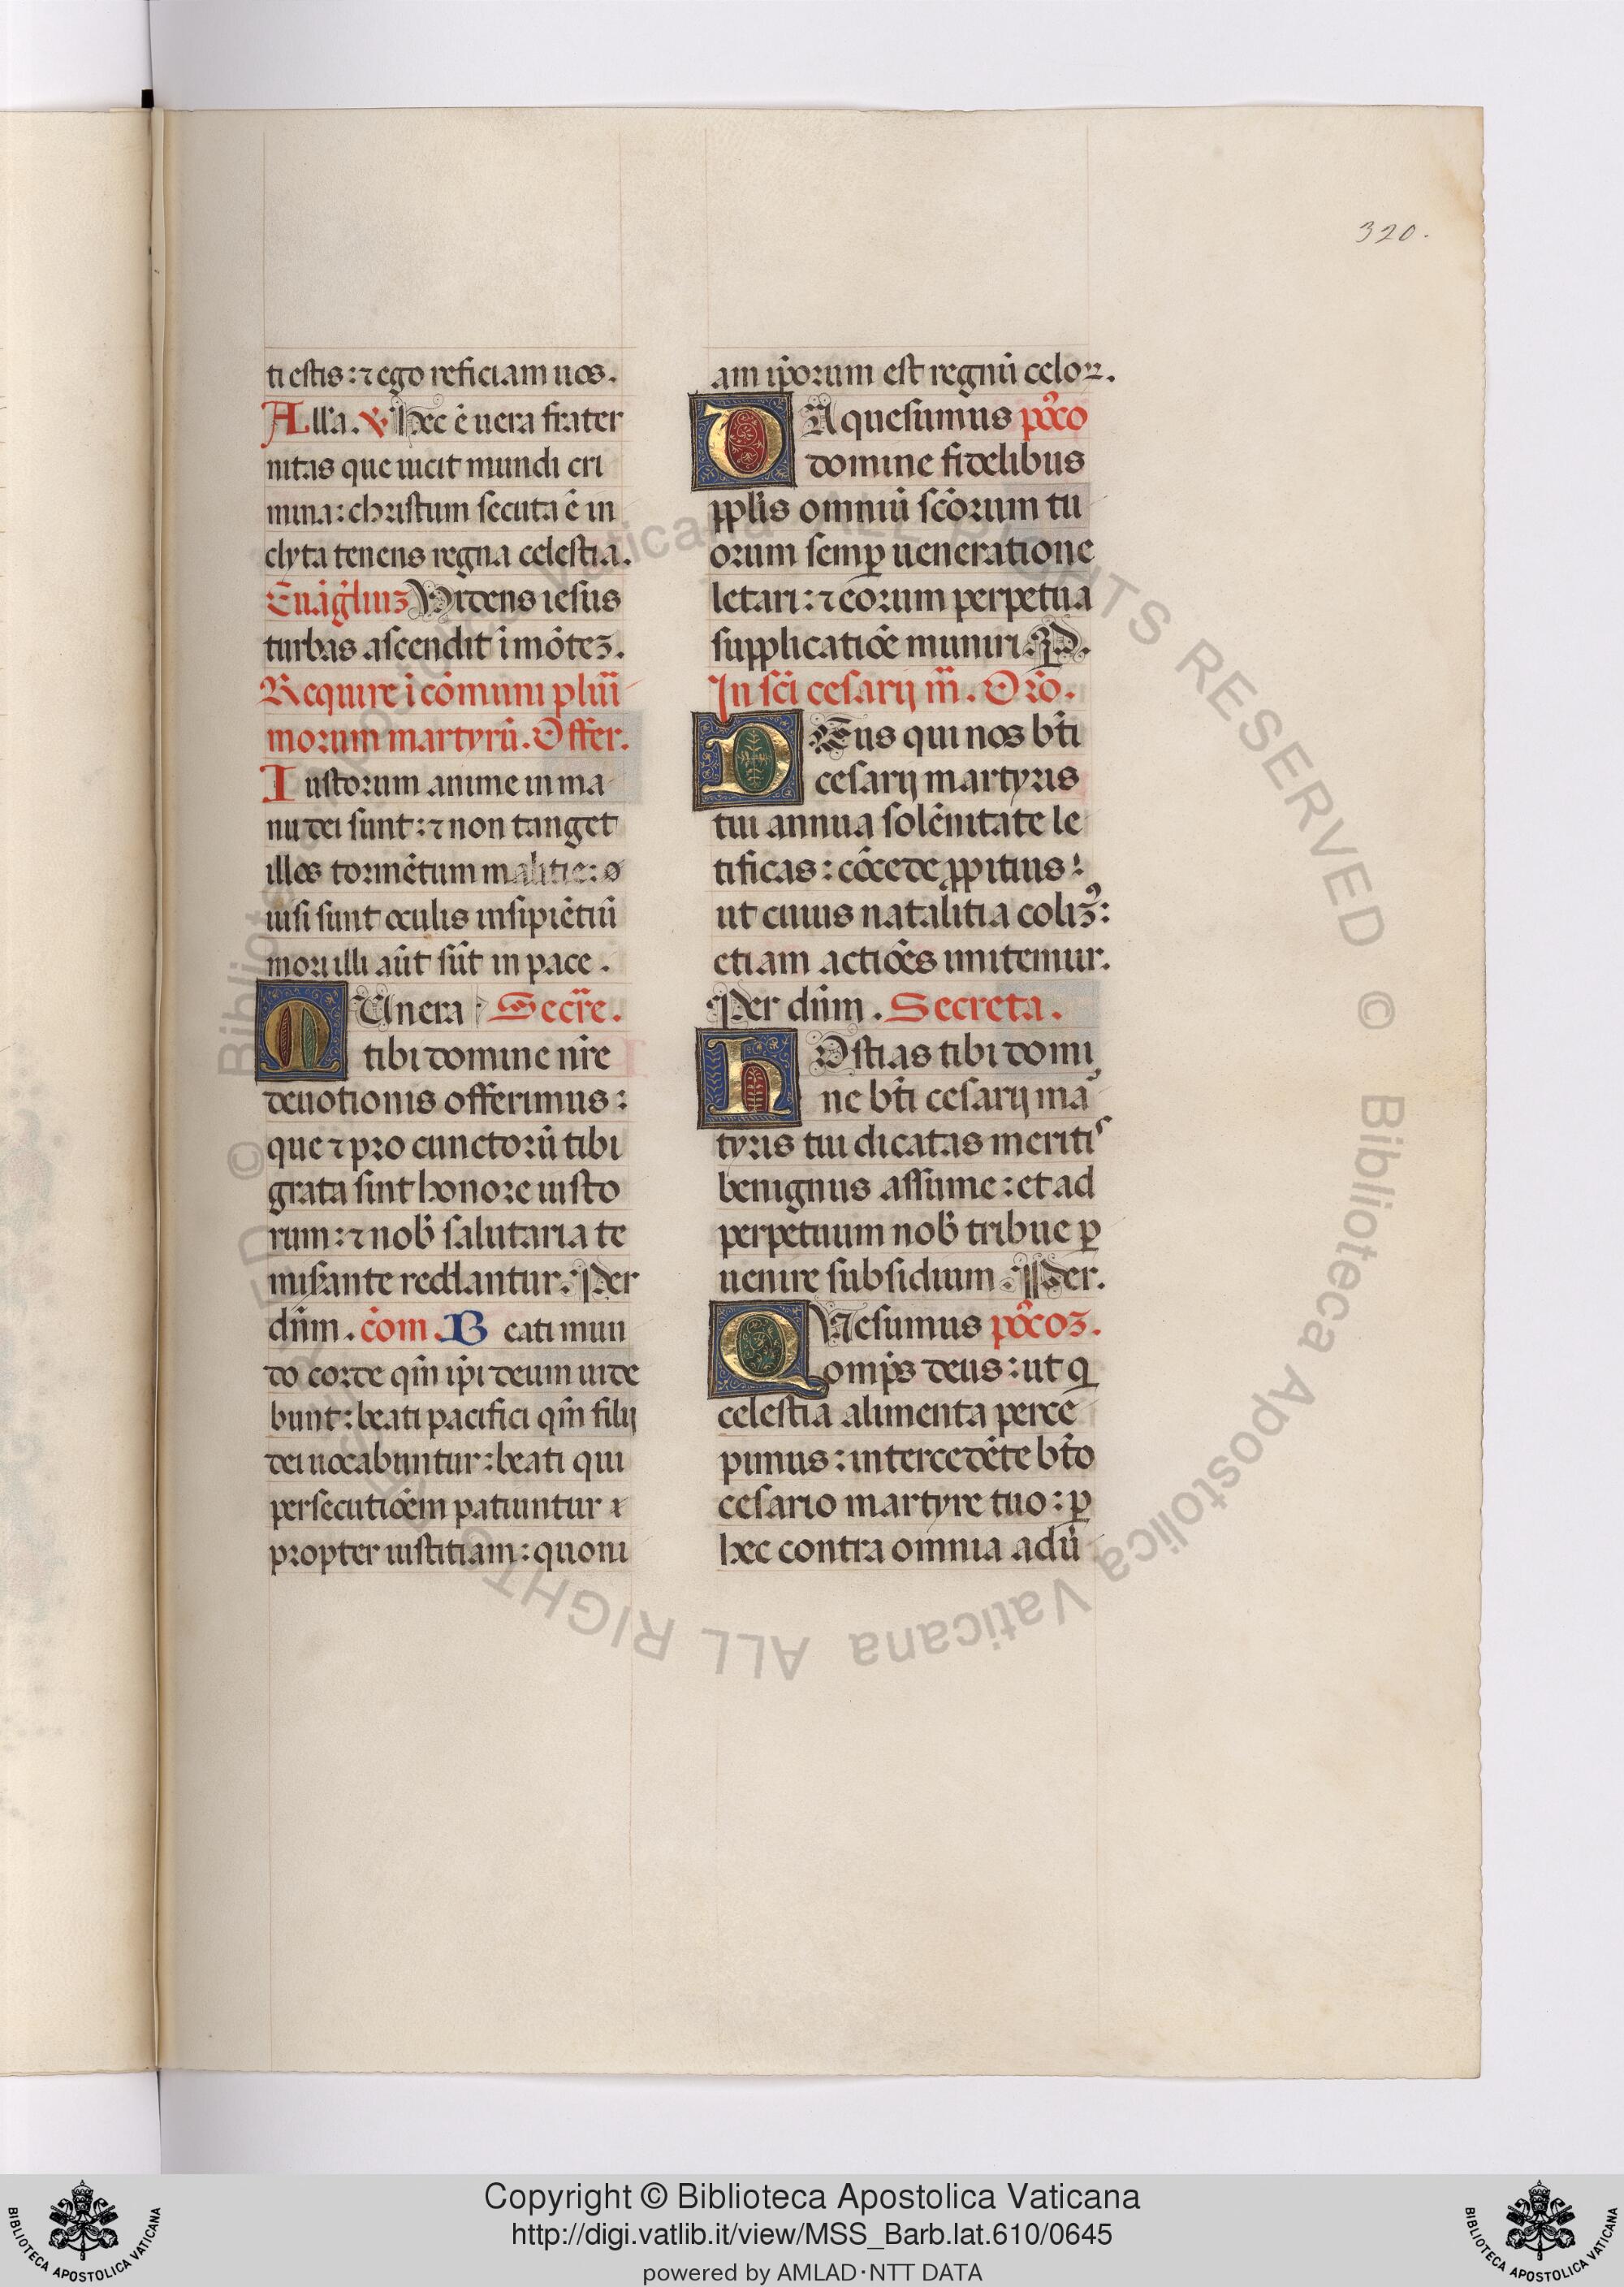 320.
ti estis: ⁊ ego reficiam uos.
Alľa. ℣ Hec ē uera frater
nitas que uicit mundi cri
mina: christum secuta ē in
clyta tenens regna celestia.
Euāgľiuꝫ Videns iesus
turbas ascendit ī mōteꝫ.
Require ī cōmuni plurī
morum martyrū. Offer.
Iustorum anime in ma
nu dei sunt: ⁊ non tanget
illos tormētum malitie:
uisi sunt oculis insipiētiū
mori illi aūt sūt in pace.
MUnera Secre.
tibi domine nr̄e
deuotionis offerimus:
que ⁊ pro cunctorū tibi
grata sint honore iusto
rum: ⁊ nob̄ salutaria te
miserante reddantur. Per
dn̄m. cōm. Beati mun
do corde qm̄ ip̄i deum uide
bunt: beati pacifici qm̄ filij
dei uocabuntur: beati qui
persecutiōem patiuntur
propter iustitiam: quoni
am ip̄orum est regnū celoꝝ.
DA quesumus pōco
domine fidelibus
ppl̄is omniū sc̄orum tu
orum semꝑ ueneratione
letari: ⁊ eorum perpetua
supplicatiōe muniri. P D.
In sc̄i cesarij m̄. Orō.
DEus qui nos bt̄i
cesarij martyris
tui annua solēnitate le
tificas: cōcede ꝓpitius:
ut cuius natalitia coliꝫ:
etiam actiōes imitemur.
Per dn̄m. Secreta.
HOstias tibi domi
ne bt̄i cesarij mar
tyris tui dicatas meritis
benignus assume: et ad
perpetuum nob̄ tribue ꝑ
uenire subsidium. Per.
QUesumus pōcoꝫ.
omp̄s deus: ut q
celestia alimenta perce
pimus: intercedēte bt̄o
cesario martyre tuo: ꝑ
hec contra omnia adū
Copyright © Biblioteca Apostolica Vaticana
http://digi.vatlib.it/view/MSS_Barb.lat.610/0645
powered by AMLAD·NTT DATA
BIBLIOTECA APOSTOLICA VATICANA
BIBLIOTECA APOSTOLICA VATICANA
© Biblioteca Apostolica Vaticana ALL RIGHTS RESERVED © Biblioteca Apostolica Vaticana ALL RIGHTS RESERVED